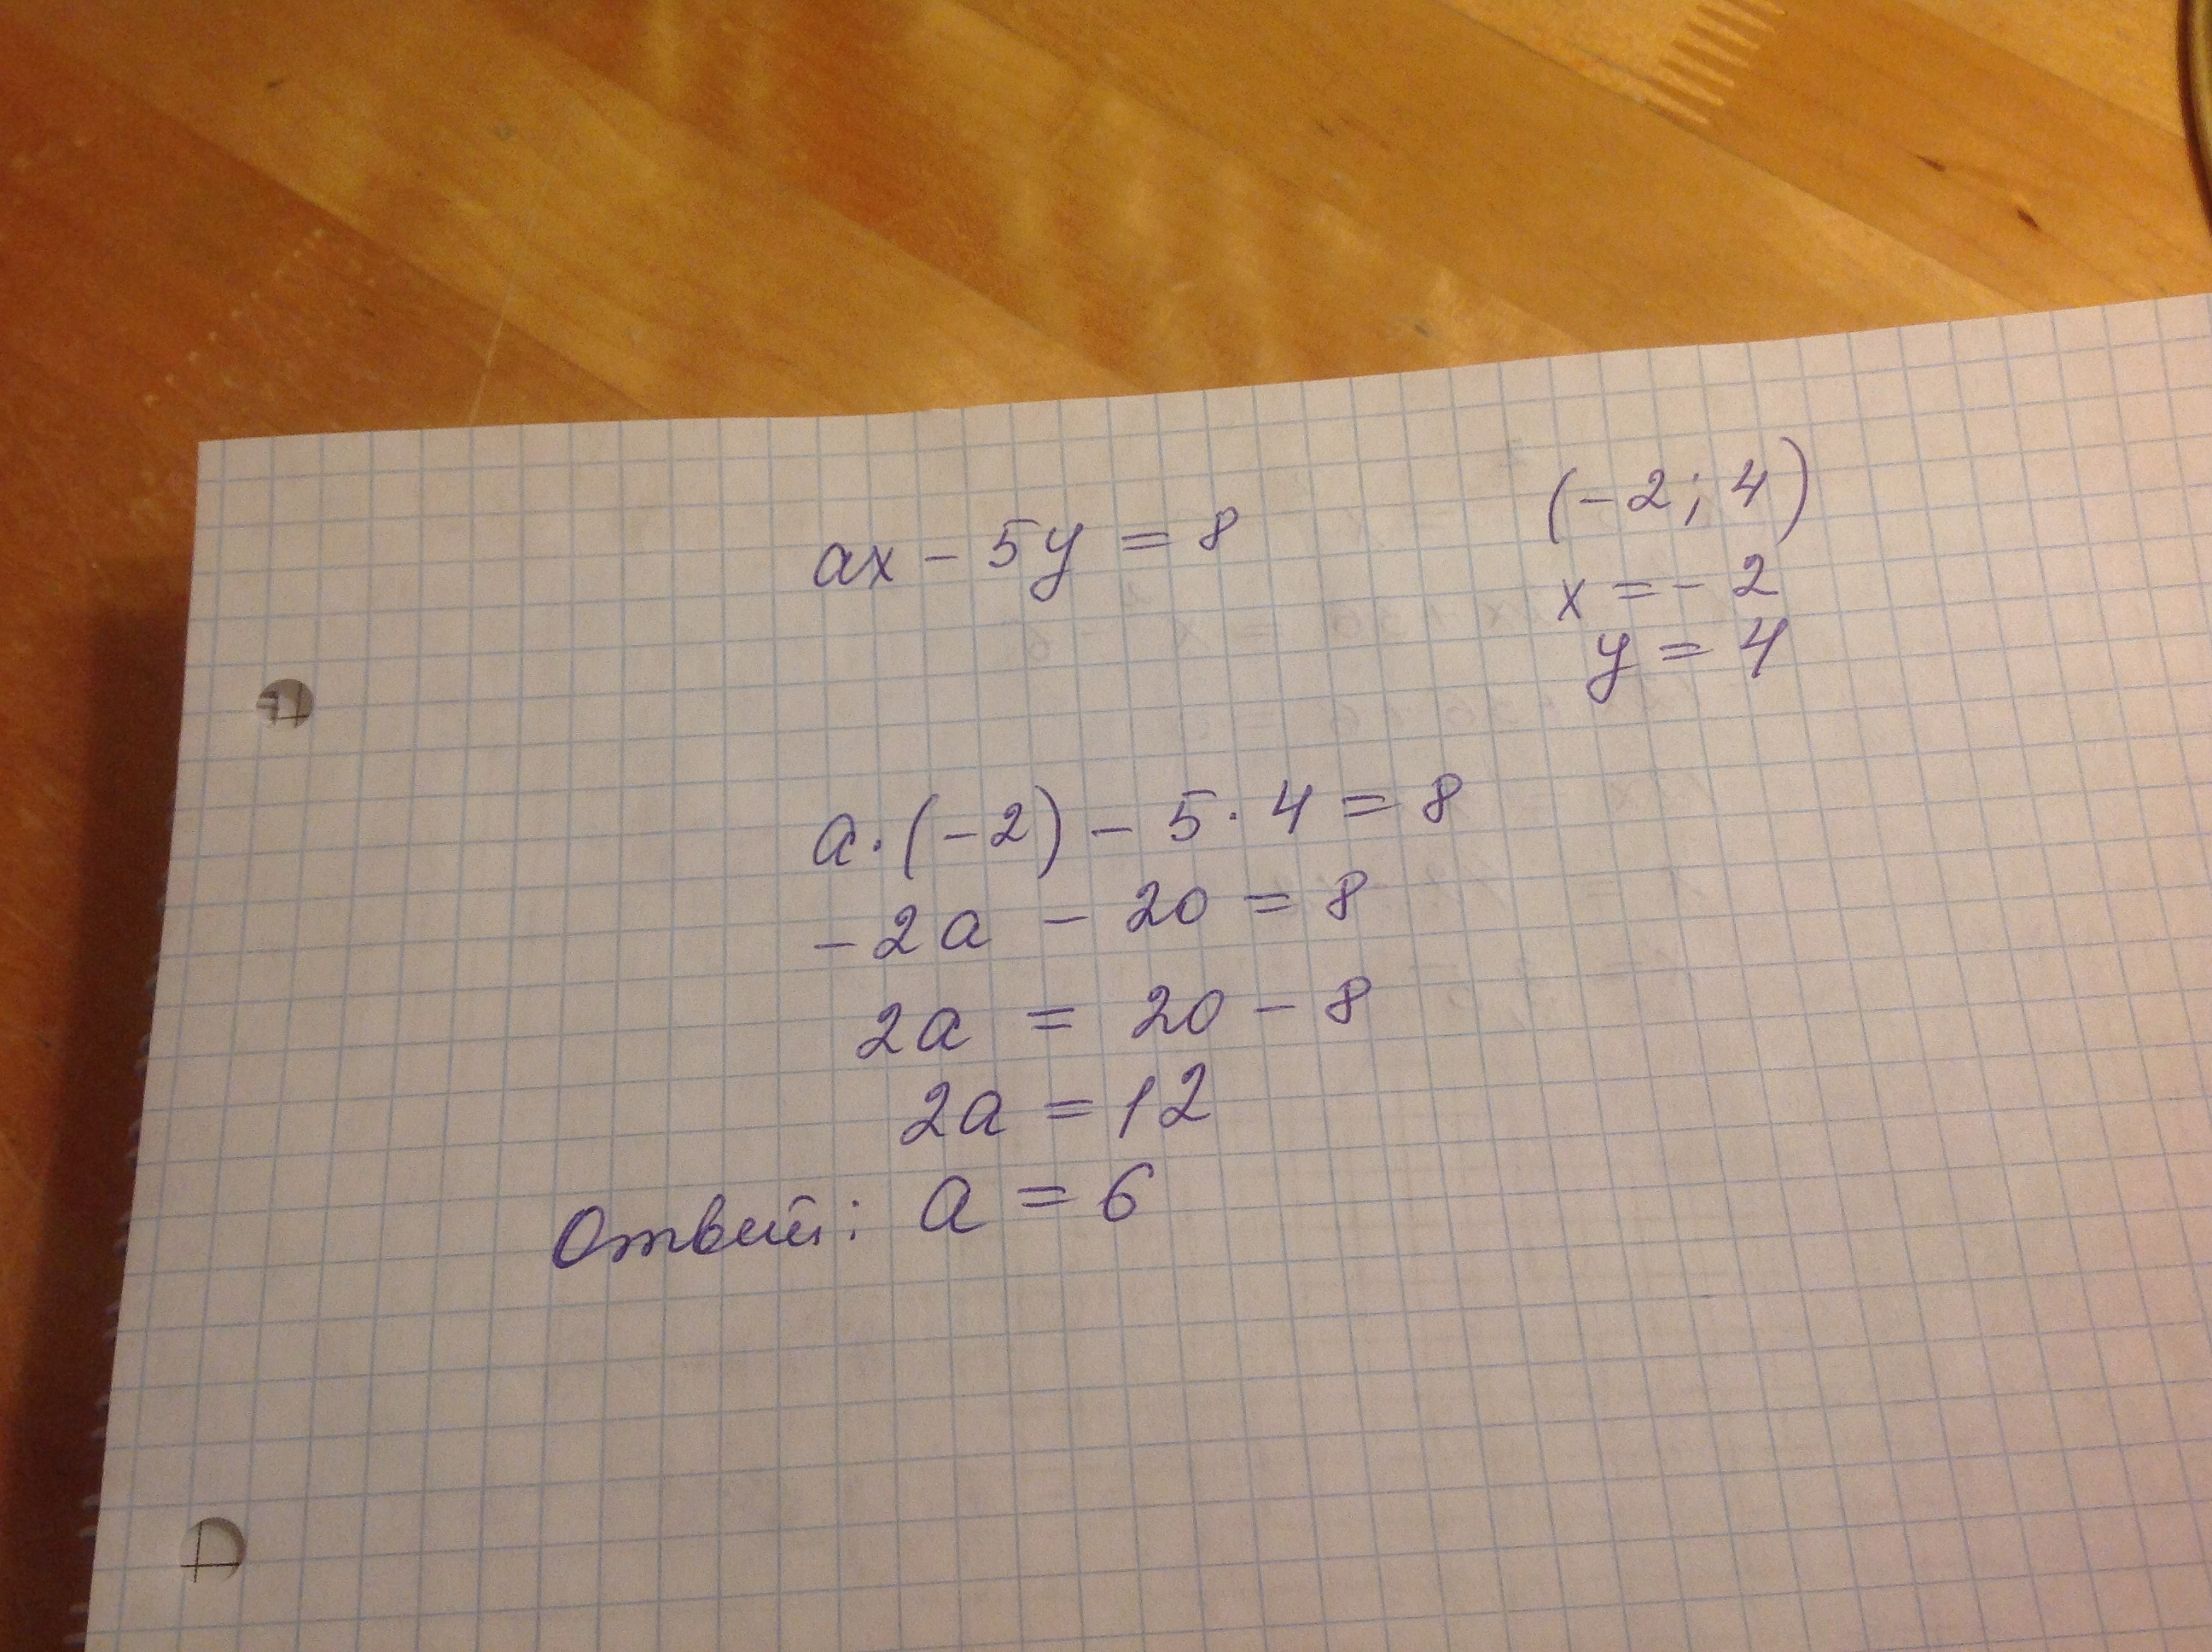 ax - 5y = 8
(-2; 4)
x = - 2
y = 4
a · (-2) - 5 · 4 = 8
- 2a - 20 = 8
2a = 20 - 8
2a = 12
Ответ: a = 6